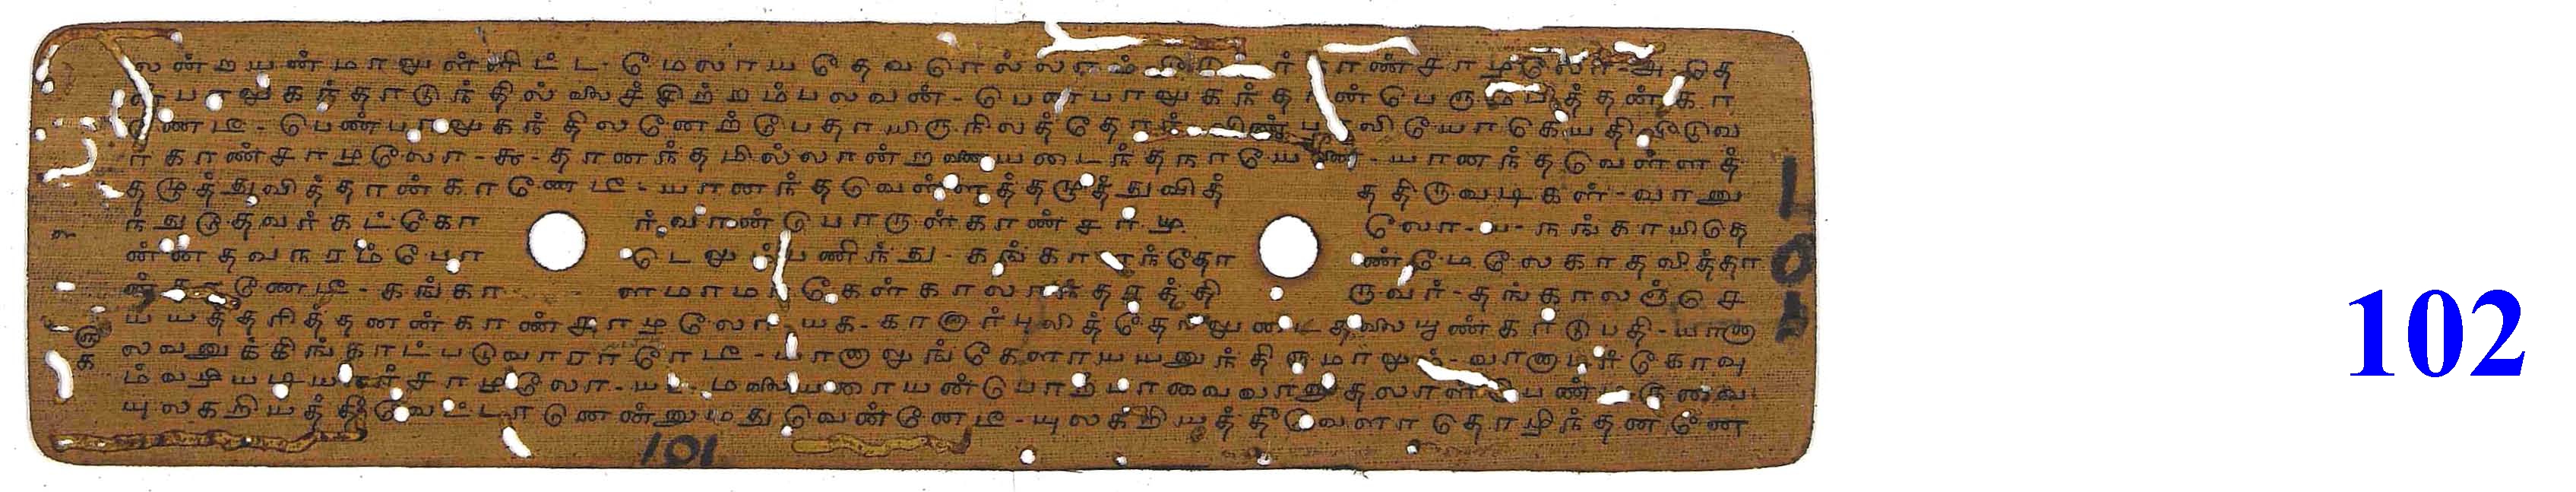 லன்றயன்மாலுள்ளிட்ட மேலாயதேவரெல்லாம் வீடுவர்காண்சாழலோ-அ-தெ
ன்பாலுகந்தாடுந்தில்லைச்சிற்றம்பலவன்-பெண்பாலுகந்தான்பெரும்பித்தன்கா
ணேடீ-பெண்பாலுகந்திலனேற்பேதாயிருநிலத்தோர் விண்பாலியோகெய்திவீடுவ
ர்காண்சாழலோ-கூ-தானந்தமில்லான்றனையடைந்தநாயேனை-யானந்தவெள்ளத்
தழுத்துவித்தான்காணேடீ-யானந்தவெள்ளத்தழுத்துவித் ததிருவடிகள்-வானு
ந்துதேவர்கட்கோ ர்வான்பொருள்காண்சாழ லோ-ய-நங்காயிதெ
ன்னதவநரம்போ டெலும்பணிந்து-கங்காளந்தோ ண்மேலேகாதலித்தா
ன்காணேடீ-கங்கா ளமாமாகேள்காலாந்தரத்தி ருவர்-தங்காலஞ்செ
ய்யத்தரித்தனன்காண்சாழலோ-யக-கானார்புலித்தோலுடைதலையூண்காடுபதி-யானா
லவனுக்கிங்காட்படுவாராரேடீ-யானாலுங்கேளாயயனுந்திருமாலும்-வானாடர்கோவு
ம்வழியடியார்சாழலோ-யஉ-மலையரையன்பொற்பாவைவாணுதலாள்பெண்டிருவை
யுலகறியத்தீவேட்டானென்னுமதுவென்னேடீ-யுலகறியத்தீவேளாதொழிந்தனனே
101
102